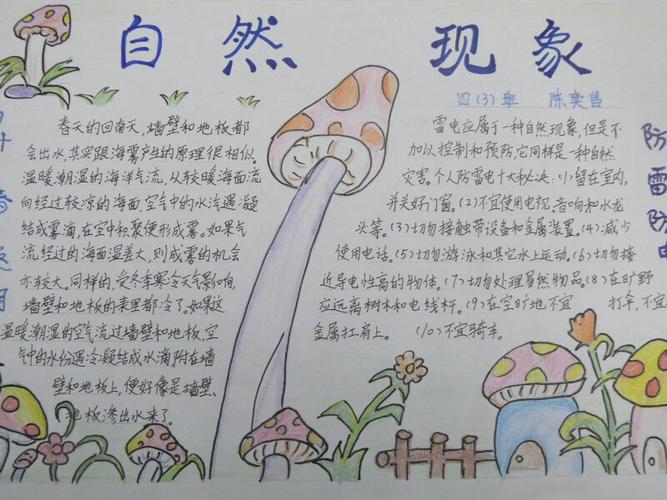 自然现象
四(3)班 陈奕昌
春天的回南天,墙壁和地板都
会出水,其实跟海雾产生的原理很相似。
温暖潮湿的海洋气流,从较暖海面流
向经过较凉的海面,空气中的水汽遇凝
结成雾滴,在空中积聚便形成雾。如果气
流经过的海面温差大,则成雾的机会
亦较大。同样的,受冬季寒冷天气影响,
墙壁和地板的表里都冷了。如果这
温暖潮湿的空气流过墙壁和地板,空
气中的水份遇冷凝结成水滴附在墙
壁和地板上,便好像是墙壁、
地板渗出水来了。
雷电应属于一种自然现象,但是不
加以控制和预防,它同样是一种自然
灾害。个人防雷电十大秘决:(1)留在室内,
并关好门窗。(2)不宜使用电视、音响和水龙
头等。(3)切勿接触带设备和金属装置。(4)减少
使用电话。(5)切勿游泳和其它水上运动。(6)切勿接
近导电性高的物体。(7)切勿处理易然物品。(8)在旷野
应远离树木和电线杆。(9)在空旷地不宜打伞,不宜
金属扛肩上。(10)不宜骑车。
防雷防电